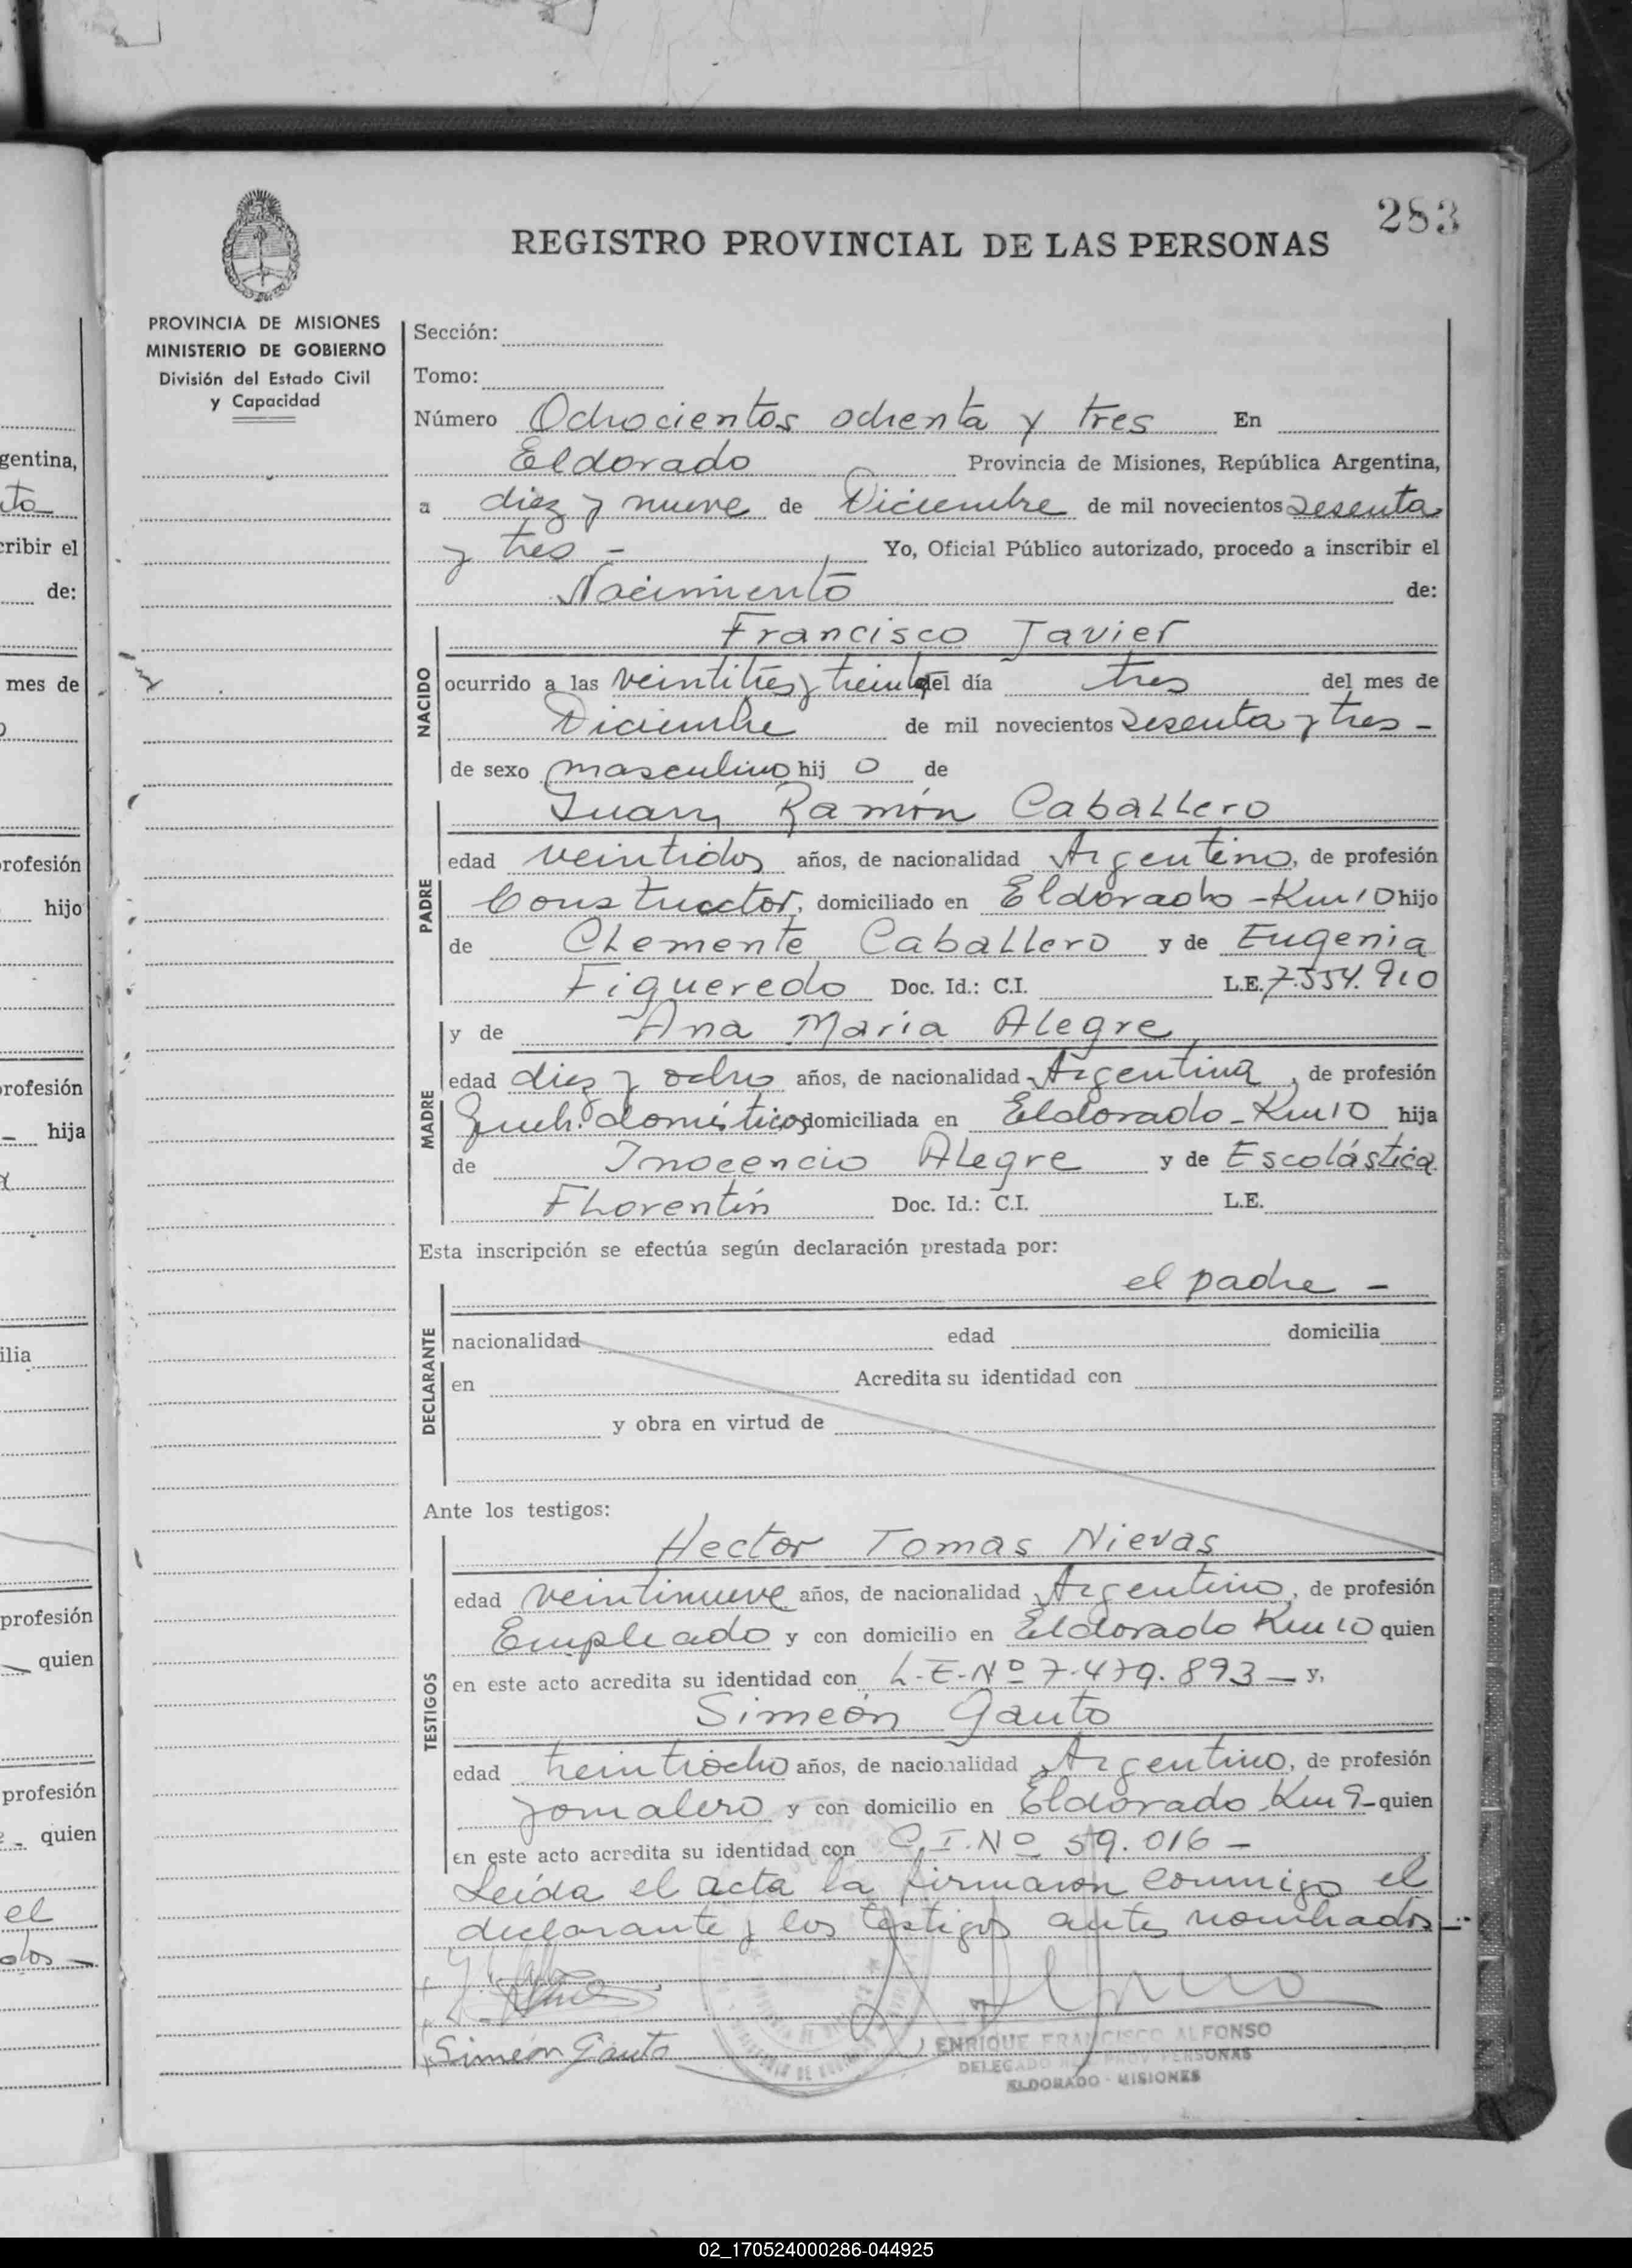 283
REGISTRO PROVINCIAL DE LAS PERSONAS
PROVINCIA DE MISIONES
MINISTERIO DE GOBIERNO
División del Estado Civil
y Capacidad
Sección:
Tomo:
Número Ochocientos ochenta y tres En
Eldorado Provincia de Misiones, República Argentina,
a diez y nueve de Diciembre de mil novecientos sesenta
y tres - Yo, Oficial Público autorizado, procedo a inscribir el
Nacimiento de:
NACIDO
Francisco Javier
ocurrido a las veintitrés y treinta del día tres del mes de
Diciembre de mil novecientos sesenta y tres -
de sexo masculino hij o de
PADRE
Juan Ramón Caballero
edad veintidos años, de nacionalidad Argentino, de profesión
Constructor, domiciliado en Eldorado - Km 10 hijo
de Clemente Caballero y de Eugenia
Figueredo Doc. Id.: C.I. L.E. 7.554.910
MADRE
y de Ana Maria Alegre
edad diez y ocho años, de nacionalidad Argentina, de profesión
domésticos domiciliada en Eldorado - Km 10 hija
de Inocencio Alegre y de Escolástica
Florentín Doc. Id.: C.I. L.E.
Esta inscripción se efectúa según declaración prestada por:
DECLARANTE
el padre -
nacionalidad edad domicilia
en Acredita su identidad con
y obra en virtud de
Ante los testigos:
TESTIGOS
Hector Tomas Nievas
edad veintinueve años, de nacionalidad Argentino, de profesión
Empleado y con domicilio en Eldorado Km 10 quien
en este acto acredita su identidad con L.E. Nº 7.479.893 - y,
Simeón Gauto
edad treintiocho años, de nacionalidad Argentino, de profesión
Jornalero y con domicilio en Eldorado Km 9 - quien
en este acto acredita su identidad con C.I. Nº 59.016 -
Leída el acta la firmaron conmigo el
declarante y los testigos antes nombrados -
Simeón Gauto
ENRIQUE FRANCISCO ALFONSO
DELEGADO REG. PROV. PERSONAS
ELDORADO - MISIONES
gentina,
cribir el
de:
mes de
profesión
hijo
profesión
hija
ilia
profesión
quien
profesión
quien
el
02_170524000286-044925